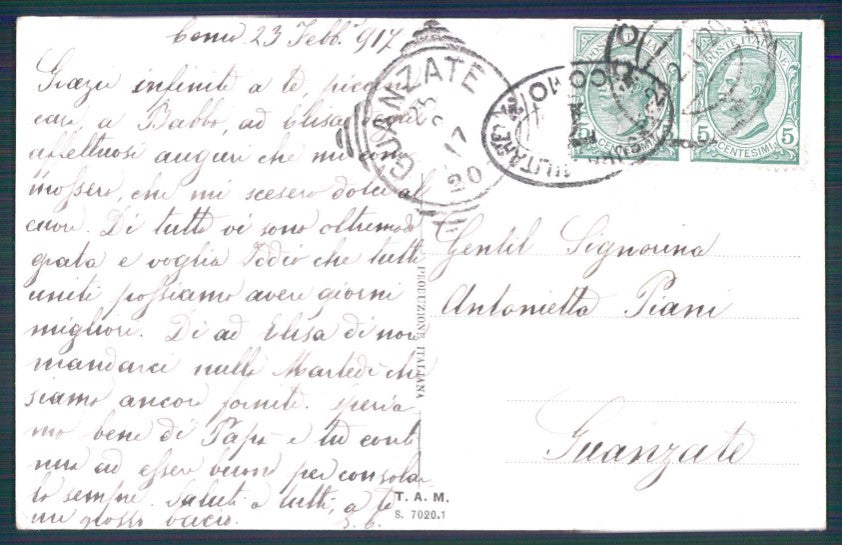 Como 23 Febb. 917
Grazie infinite a te, piccina
cara, a Babbo, ad Elisa degli
affettuosi auguri che mi com
mossero, che mi scesero dolce al
cuore. Di tutto vi sono oltremodo
grata e voglia Iddio che tutti
uniti possiamo avere giorni
migliori. Di ad Elisa di non
mandarci nulla Martedì che
siamo ancora fornite. Speria
mo bene di Papà e tu conti
nua ad essere buona per consolar
lo sempre. Saluti a tutti, a te
un grosso bacio.
GUANZATE
23 2
17
20
COMO
POSTE ITALIANE
5 CENTESIMI 5
PRODUZIONE ITALIANA
T. A. M.
S. 7020.1
Gentil Signorina
Antonietta Piani
Guanzate